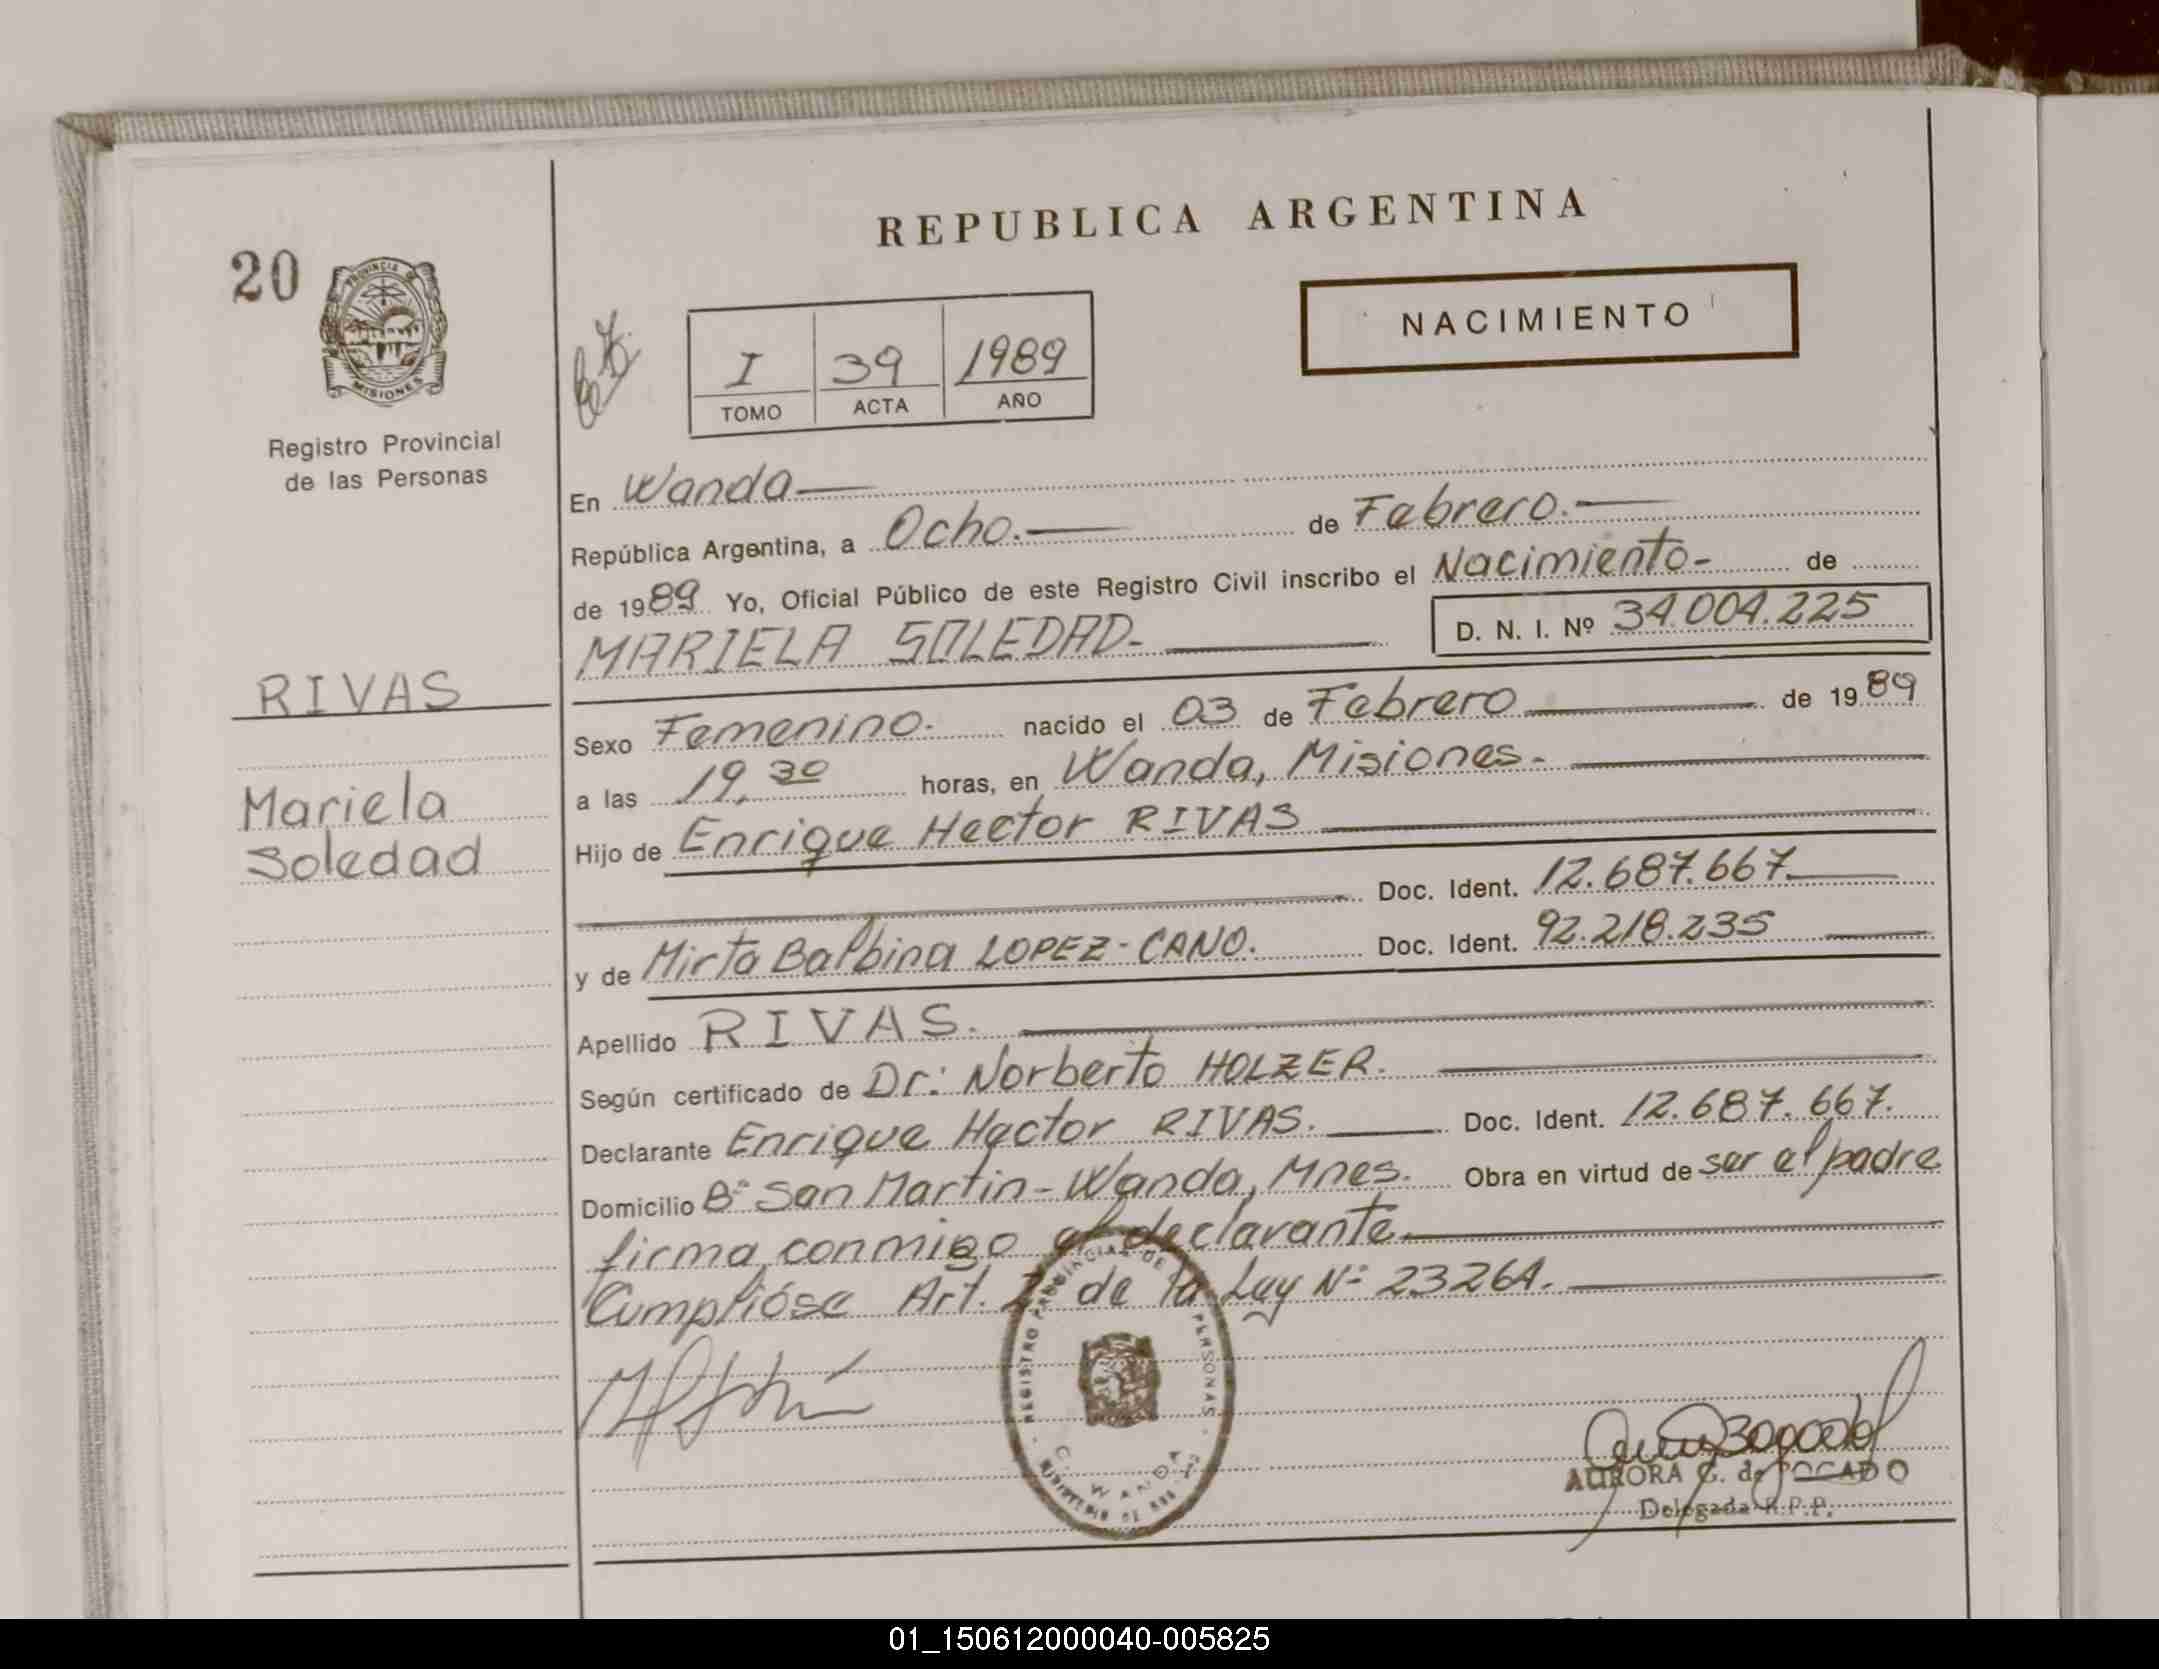 REPUBLICA ARGENTINA
20
PROVINCIA DE
MISIONES
Registro Provincial
de las Personas
NACIMIENTO
I 39 1989
TOMO ACTA AÑO
En Wanda
República Argentina, a Ocho. de Febrero.
de 1989 Yo, Oficial Público de este Registro Civil inscribo el Nacimiento- de
MARIELA SOLEDAD. D. N. I. Nº 34.004.225
RIVAS
Mariela
Soledad
Sexo Femenino. nacido el 03 de Febrero de 1989
a las 19,30 horas, en Wanda, Misiones.
Hijo de Enrique Hector RIVAS
Doc. Ident. 12.687.667.
y de Mirta Balbina LOPEZ-CANO. Doc. Ident. 92.218.235
Apellido RIVAS.
Según certificado de Dr: Norberto HOLZER.
Declarante Enrique Hector RIVAS. Doc. Ident. 12.687.667.
Domicilio Bº San Martin-Wanda, Mnes. Obra en virtud de ser el padre
firma conmigo el declarante
Cumplióse Art. 2 de la Ley Nº 23264.
REGISTRO PROVINCIAL DE PERSONAS
WANDA
AURORA G. de
Delegada R.P.P.
01_150612000040-005825